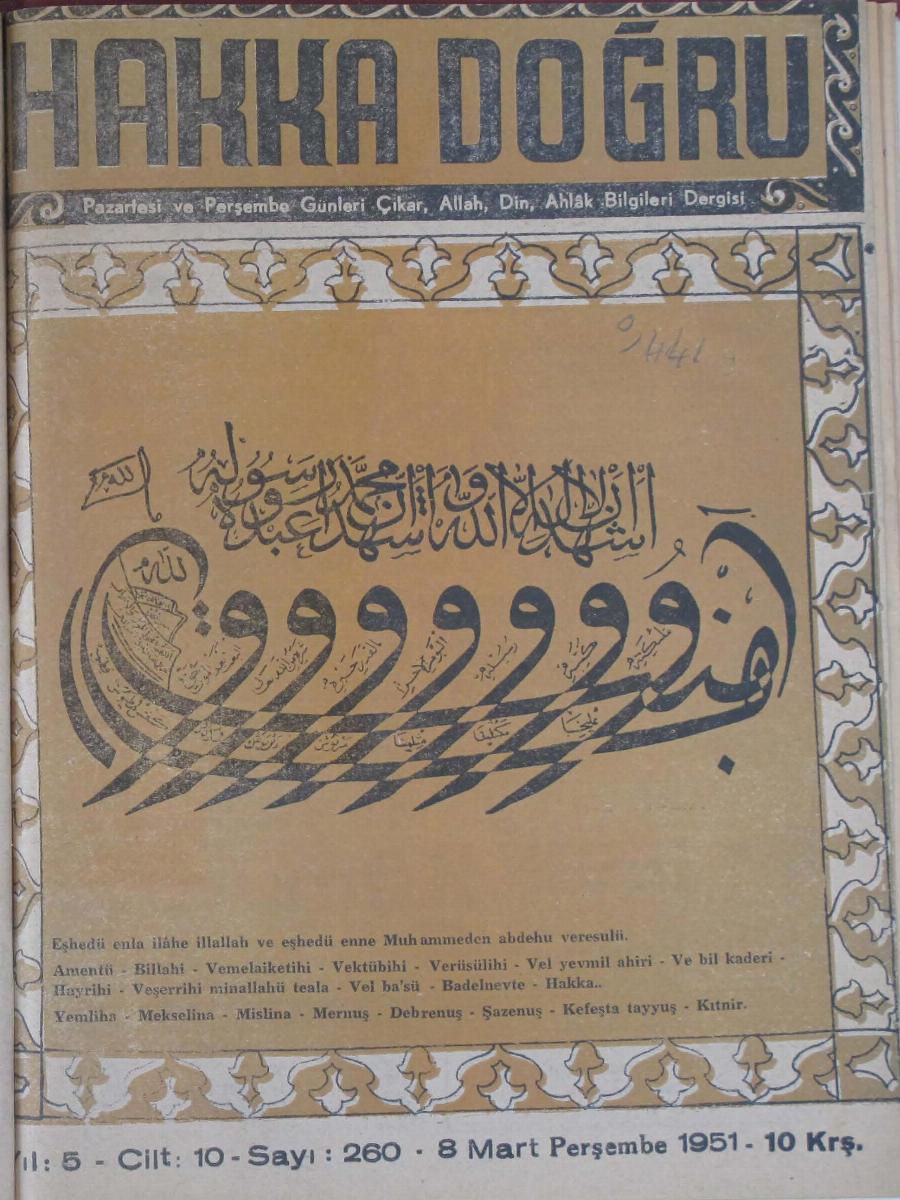 HAKKA DOĞRU
Pazartesi ve Perşembe Günleri Çıkar, Allah, Din, Ahlâk Bilgileri Dergisi
9441
الله
اشهد ان لا اله الا الله و اشهد ان محمدا عبده و رسوله
الله
Eşhedü enla ilâhe illallah ve eşhedü enne Muhammeden abdehu veresulü.
Amentü - Billahi - Vemelaiketihi - Vektübihi - Verüsülihi - Vel yevmil ahiri - Ve bil kaderi -
Hayrihi - Veşerrihi minallahü teala - Vel ba'sü - Badelnevte - Hakka..
Yemliha - Mekselina - Mislina - Mernuş - Debrenuş - Şazenuş - Kefeşta tayyuş - Kıtnir.
Yıl: 5 - Cilt: 10 - Sayı: 260 - 8 Mart Perşembe 1951 - 10 Krş.